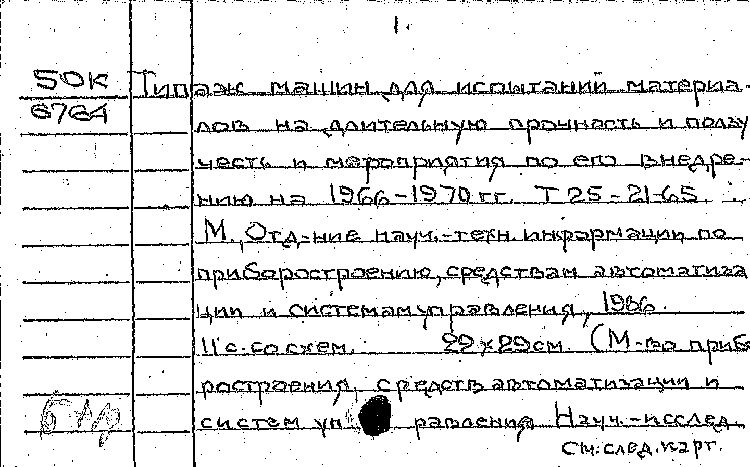 1.
50К Типаж машин для испытаний материа-
6764 лов на длительную прочность и ползу
честь и мероприятия по его внедре-
нию на 1966-1970 гг. Т 25-21-65.
М., Отд-ние науч.-техн. информации по
приборостроению, средствам автоматиза
ции и системам управления, 1966.
11 с. со схем. 22х29 см. (М-во приб
ростроения, средств автоматизации и
систем уп равления Науч.-исслед.
См. след. карт.